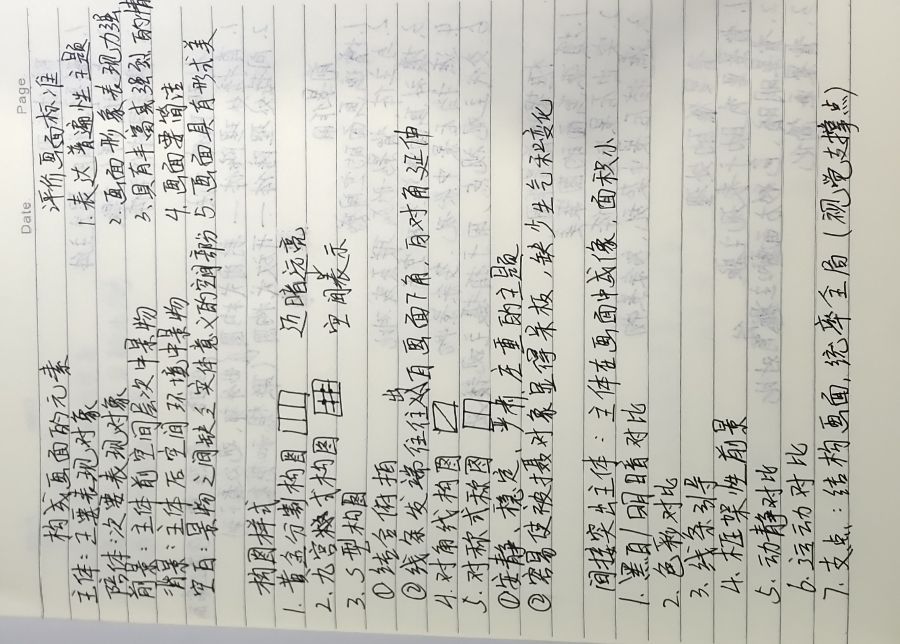 Date Page
构成画面的元素 评价画面标准
主体:主要表现对象 1.表达普遍性主题
陪体:次要表现对象 2.画面形象表现力强
前景:主体前空间层次中景物 3.具有丰富或强烈的情
背景:主体后空间环境中景物 4.画面要简洁
空白:景物之间缺乏实体意义的空间部份 5.画面具有形式美
构图样式
1.黄金分割构图 近暗远亮
2.九宫格式构图 空间表示
3.S型构图
①结合俯拍
②线条发端往往从画面下角,向对角延伸
4.对角线构图
5.对称式构图
①安静、稳定、庄重的主题
②容易使被摄对象显得呆板,缺少生气和变化
间接突出主体:主体在画面中成像,面积小
1.黑白/明暗对比
2.色彩对比
3.线条引导
4.框架性前景
5.动静对比
6.运动对比
7.支点:结构画面,统率全局(视觉支撑点)